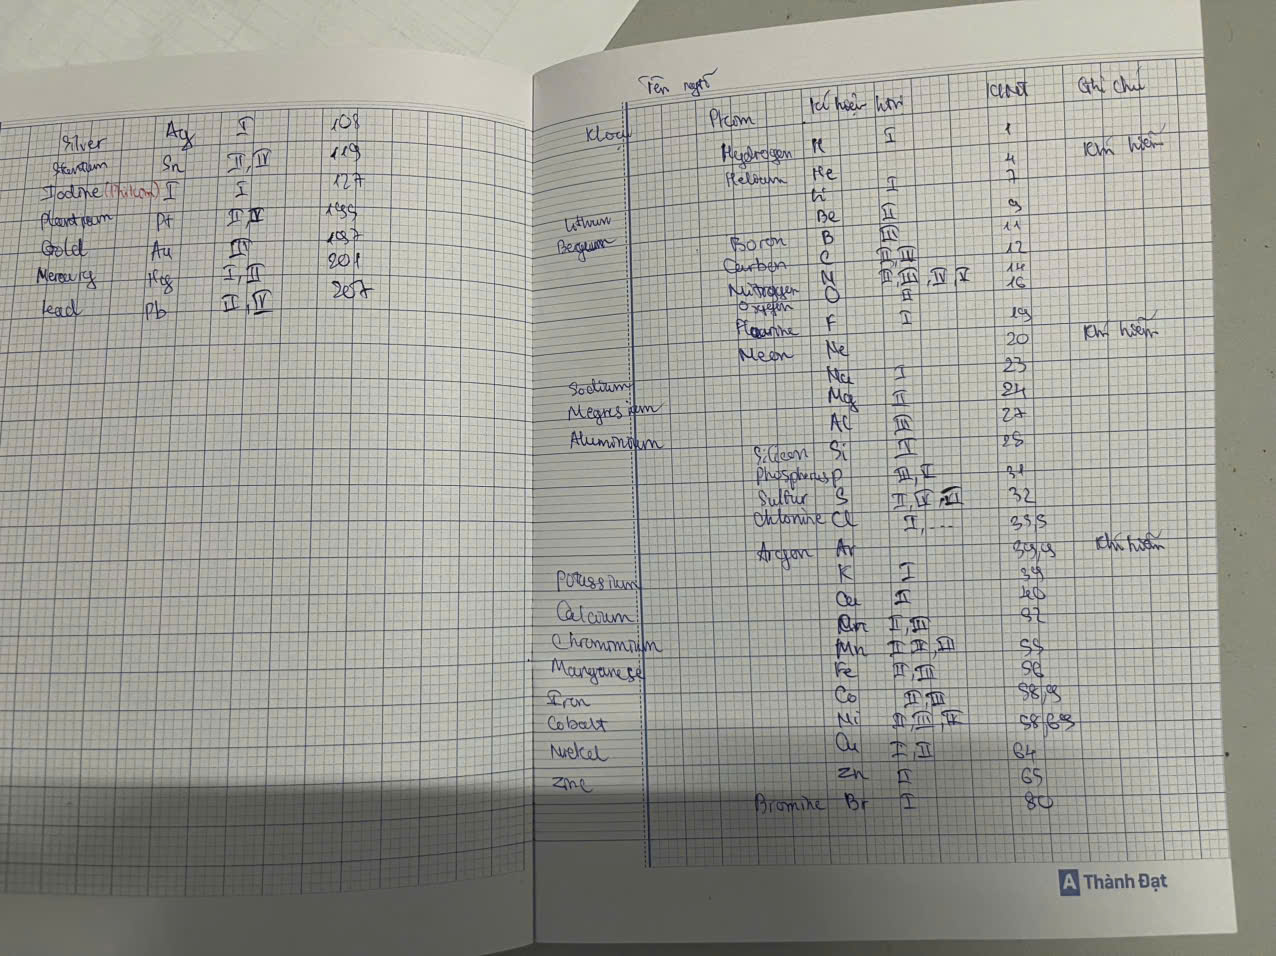 Silver Ag I 108
Sn II, IV 119
Iodine (Phi kim) I I 127
Pt II, IV 195
Gold Au III 197
Mercury Hg I, II 201
Lead Pb II, IV 207
Tên ngtố
Kloại Pkim Kí hiệu htrị Ghi chú
Hydrogen H I 1
He 4 Khí hiếm
Lithium Li I 7
Be II 9
Boron B III 11
Carbon C II, IV 12
Nitrogen N II, III, IV, V 14
Oxygen O II 16
F I 19
Neon Ne 20 Khí hiếm
Sodium Na I 23
Mg II 24
Al III 27
Si IV 28
Phosphorus P III, V 31
Sulfur S II, IV, VI 32
Chlorine Cl I, ... 35,5
Argon Ar 39,9 Khí hiếm
Potassium K I 39
Calcium Ca II 40
II, III 52
Manganese Mn 55
Iron Fe II, III 56
Cobalt Co II, III 58,9
Nickel Ni 58,69
Cu I, II 64
Zinc Zn II 65
Bromine Br I 80
A Thành Đạt